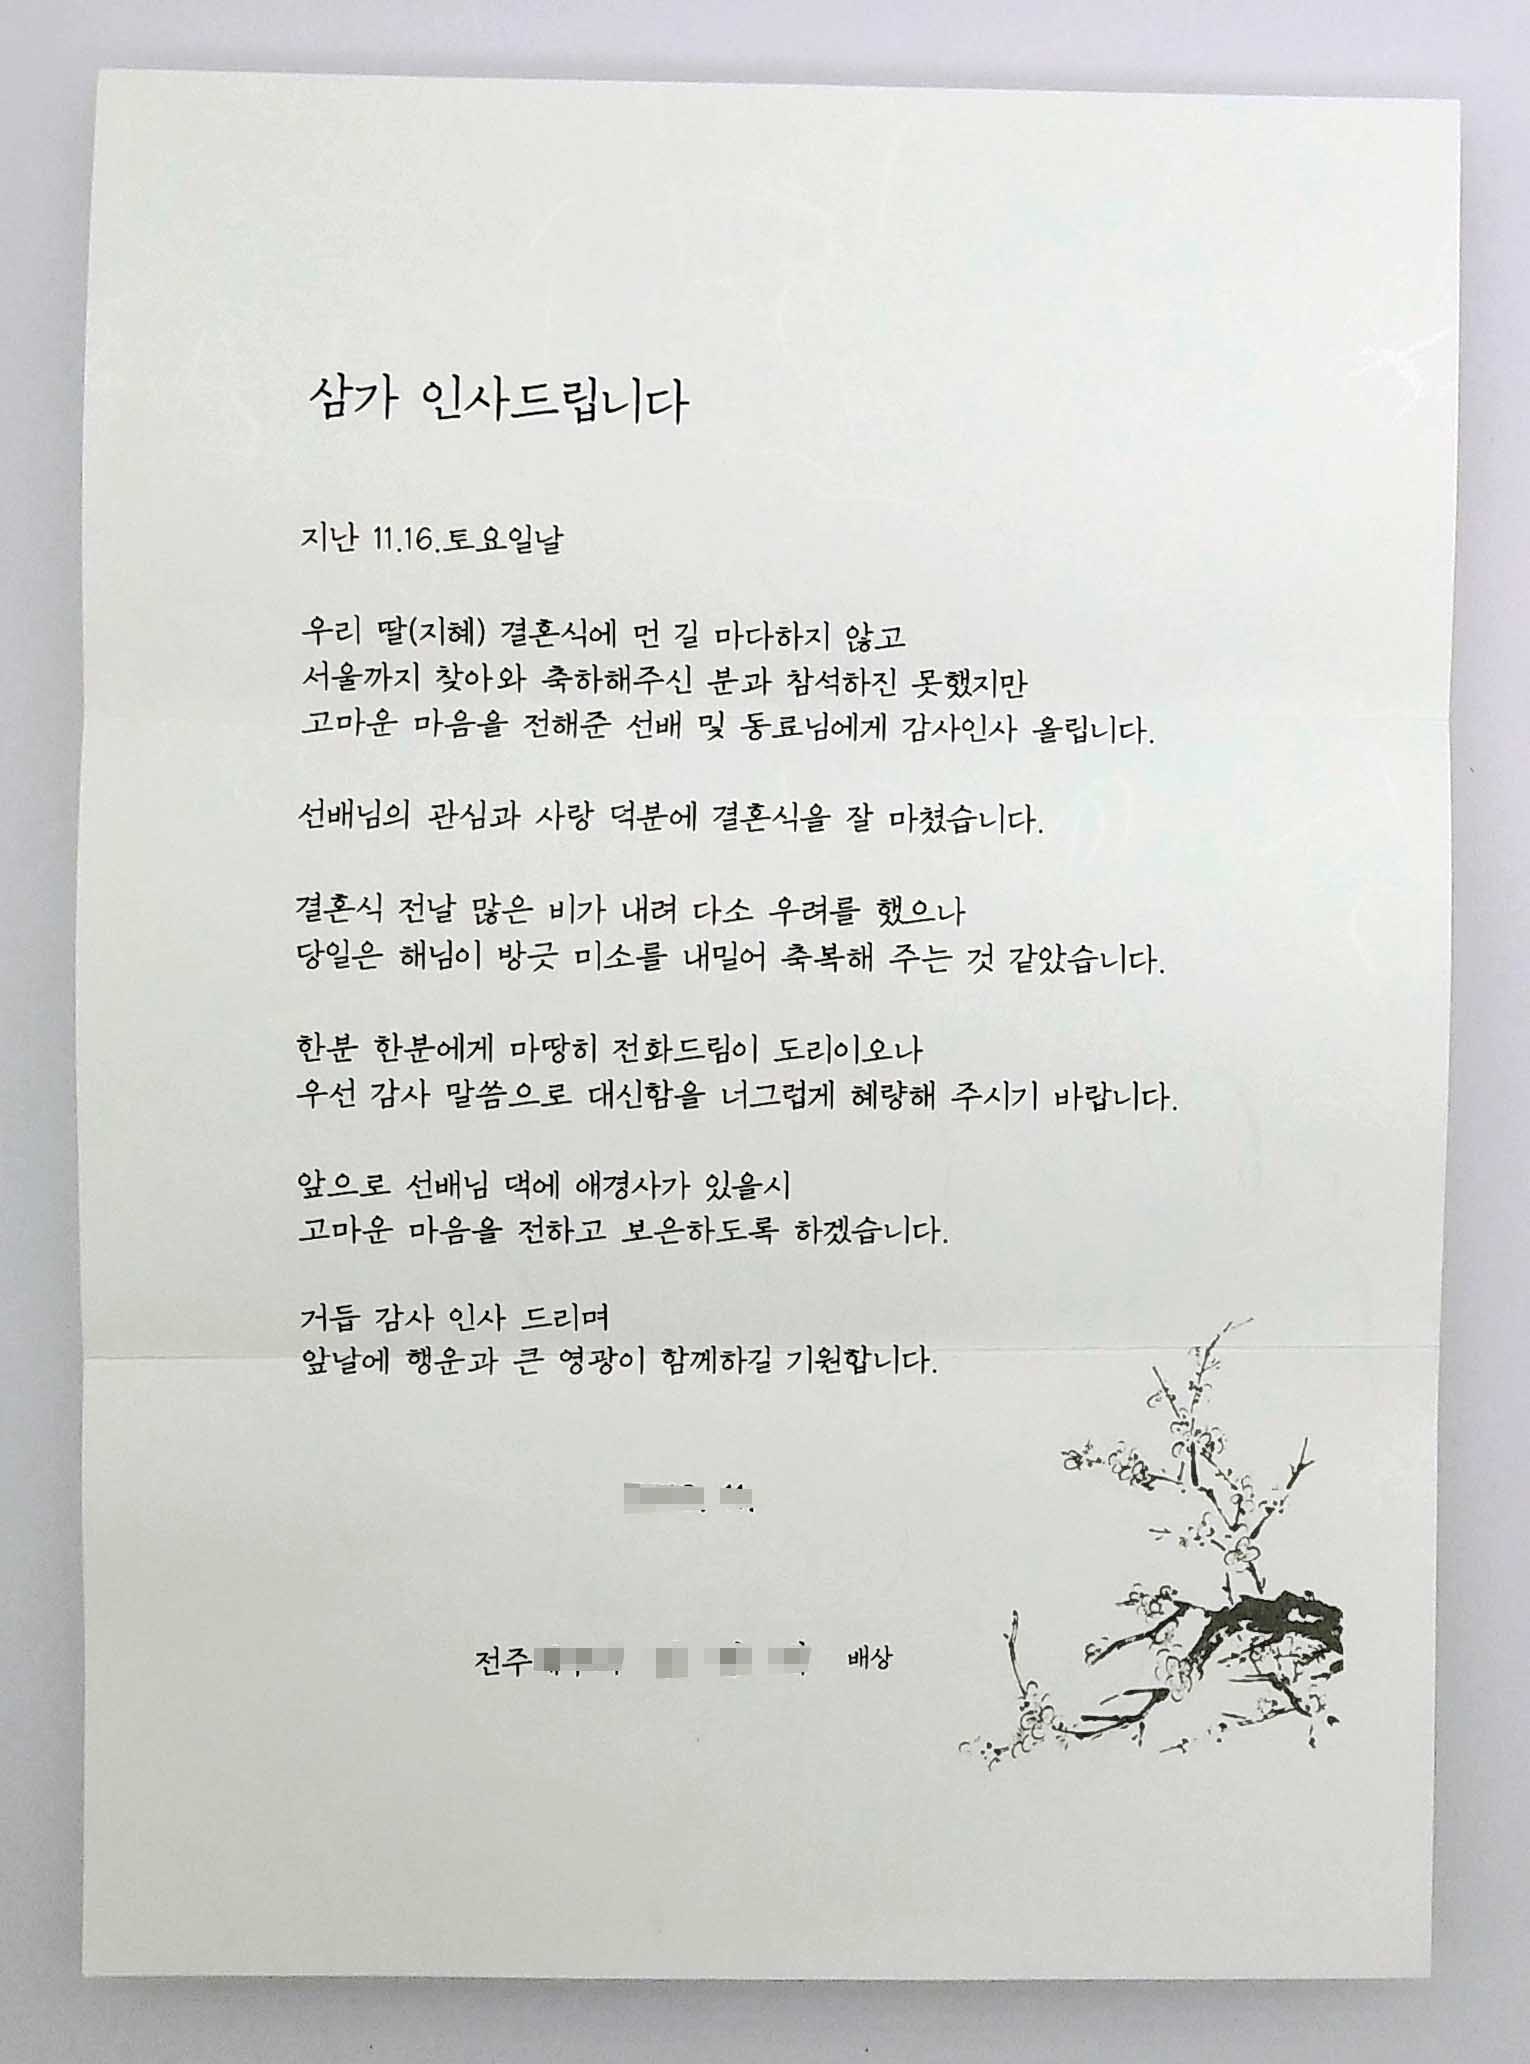 삼가 인사드립니다
지난 11.16.토요일날
우리 딸(지혜) 결혼식에 먼 길 마다하지 않고
서울까지 찾아와 축하해주신 분과 참석하진 못했지만
고마운 마음을 전해준 선배 및 동료님에게 감사인사 올립니다.
선배님의 관심과 사랑 덕분에 결혼식을 잘 마쳤습니다.
결혼식 전날 많은 비가 내려 다소 우려를 했으나
당일은 해님이 방긋 미소를 내밀어 축복해 주는 것 같았습니다.
한분 한분에게 마땅히 전화드림이 도리이오나
우선 감사 말씀으로 대신함을 너그럽게 혜량해 주시기 바랍니다.
앞으로 선배님 댁에 애경사가 있을시
고마운 마음을 전하고 보은하도록 하겠습니다.
거듭 감사 인사 드리며
앞날에 행운과 큰 영광이 함께하길 기원합니다.
전주 배상